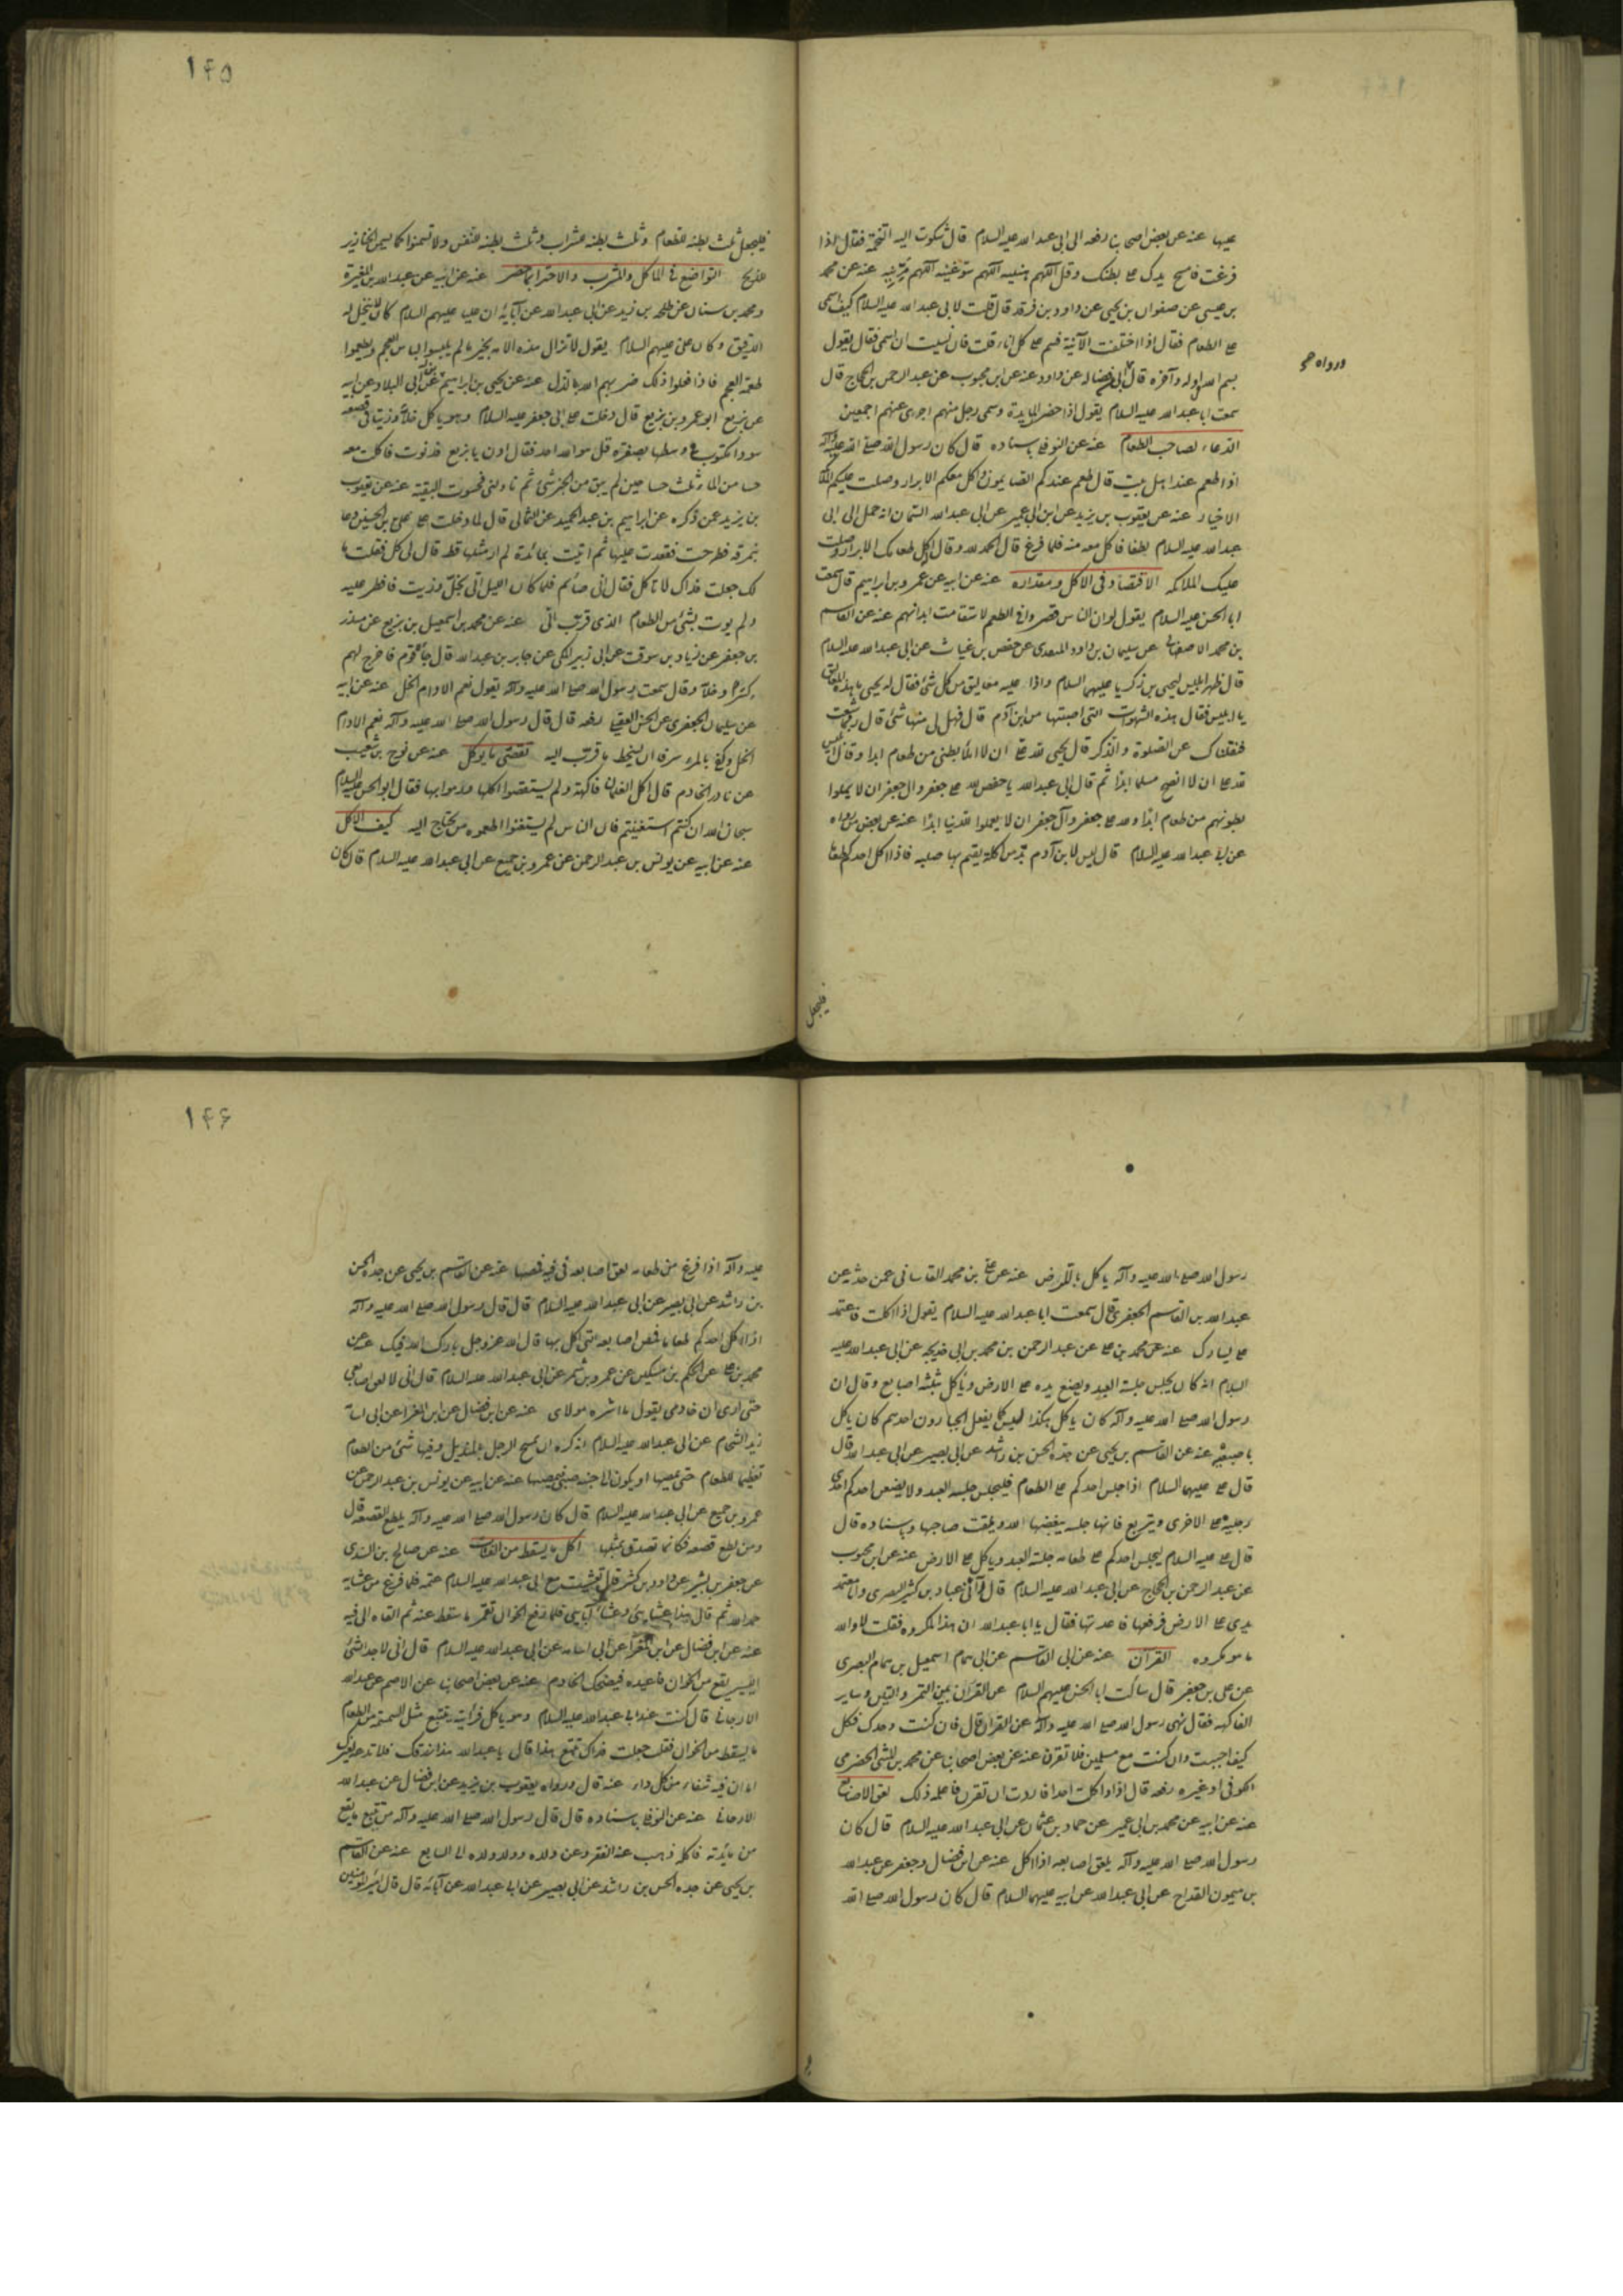 عليها عنه عن بعض اصحابنا رفعه الى ابى عبد الله عليه السلام قال شكوت اليه التخمة فقال اذا
فرغت فامسح يدك على بطنك وقل اللهم هنئنيه اللهم سوغنيه اللهم مرئنيه عنه عن محمد
بن عيسى عن صفوان بن يحيى عن داود بن فرقد قال قلت لابى عبد الله عليه السلام كيف اسمى
على الطعام فقال اذا اختلفت الآنية فسم على كل اناء قلت فان نسيت ان اسمى فقال يقول
بسم الله اوله وآخره قال عن داود عنه عن ابن محبوب عن عبد الرحمن بن الحجاج قال
ورواه
سمعت ابا عبد الله عليه السلام يقول اذا حضر المايدة وسمى رجل منهم اجزى عنهم اجمعين
الدعاء لصاحب الطعام عنه عن النوفلى باسناده قال كان رسول الله صلى الله عليه وآله
اذا طعم عند اهل بيت قال طعم عندكم الصايمون واكل معكم الابرار وصلت عليكم الملائكة
الاخيار عنه عن يعقوب بن يزيد عن ابن ابى عمير عن ابى عبد الله السمان انه حمل الى ابى
عبد الله عليه السلام لطفا فاكل معه منه فلما فرغ قال الحمد لله وقال اكل طعامك الابرار وصلت
عليك الملائكة الاقتصاد فى الاكل ومقداره عنه عن ابيه عن عمرو بن ابراهيم قال سمعت
ابا الحسن عليه السلام يقول لو ان الناس قصروا فى الطعم لاستقامت ابدانهم عنه عن القاسم
بن محمد الاصفهانى عن سليمان بن داود المنقرى عن حفص بن غياث عن ابى عبد الله عليه السلام
قال ظهر ابليس ليحيى بن زكريا عليهما السلام واذا عليه معاليق من كل شئ فقال له يحيى ما هذه المعاليق
يا ابليس فقال هذه الشهوات التى اصبتها من ابن آدم قال فهل لى منها شئ قال ربما شبعت
فثقلناك عن الصلوة والذكر قال يحيى لله على ان لا املأ بطنى من طعام ابدا وقال ابليس
لله على ان لا انصح مسلما ابدا ثم قال ابى عبد الله يا حفص لله على جعفر وال جعفر ان لا يملوا
بطونهم من طعام ابدا ولله على جعفر وآل جعفر ان لا يعملوا للدنيا ابدا عنه عن بعض من رواه
عن ابى عبد الله عليه السلام قال ليس لابن آدم بد من اكلة يقيم بها صلبه فاذا اكل احدكم طعاما
فليجعل
١٤٥
فليجعل ثلث بطنه للطعام وثلث بطنه للشراب وثلث بطنه للنفس ولا تسمنوا كما يسمن الخنازير
للذبح التواضع فى المآكل والمشرب والاجتزاء بما حضر عنه عن ابيه عن عبد الله بن المغيرة
ومحمد بن سنان عن طلحة بن زيد عن ابى عبد الله عن آبائه ان عليا عليهم السلام كان لا ينخل له
الدقيق وكان على عليهم السلام يقول لا تزال هذه الامة بخير ما لم يلبسوا لباس العجم ويطعموا
طعمة العجم فاذا فعلوا ذلك ضربهم الله بالذل عنه عن يحيى بن ابراهيم عن ابى البلاد عن ابيه
عن بزيع ابو عمرو بن بزيع قال دخلت على ابى جعفر عليه السلام وهو ياكل خلا وزيتا فى قصعة
سودا مكتوب فى وسطها بصفرة قل هو الله احد فقال ادن يا بزيع فدنوت فاكلت معه
حسا من الماء ثلث حسا حين لم يبق من الخبز شئ ثم ناولنى فحسوت البقية عنه عن يعقوب
بن يزيد عمن ذكره عن ابراهيم بن عبد الحميد عن الثمالى قال لما دخلت على على بن الحسين دعا
بنمرقة فطرحت فقعدت عليها ثم اتيت بمائدة لم ار مثلها قط قال لى كل فقلت ما
لك جعلت فداك لا تاكل فقال انى صائم فلما كان الليل اتى بخل وزيت فافطر عليه
ولم يوت بشئ من الطعام الذى قرب الى عنه عن محمد بن اسمعيل بن بزيع عن منذر
بن جعفر عن زياد بن سوقة عن ابى زبير المكى عن جابر بن عبد الله قال جاءه قوم فاخرج لهم
كسرا وخلا وقال سمعت رسول الله صلى الله عليه وآله يقول نعم الادام الخل عنه عن ابيه
عن سليمان الجعفرى عن الحسن العقيلى رفعه قال قال رسول الله صلى الله عليه وآله نعم الادام
الخل وكفى بالمرء سرفا ان يسخط ما قرب اليه تقصى ما يوكل عنه عن نوح بن شعيب
عن نادر الخادم قال اكل الغلمان فاكهة ولم يستقصوا اكلها ورموا بها فقال ابو الحسن عليه السلام
سبحان الله ان كنتم استغنيتم فان الناس لم يستغنوا اطعموه من يحتاج اليه كيف الاكل
عنه عن ابيه عن يونس بن عبد الرحمن عن عمرو بن جميع عن ابى عبد الله عليه السلام قال كان
رسول الله صلى الله عليه وآله ياكل بالارض عنه عن على بن محمد القاسانى عمن حدثه عن
عبد الله بن القاسم الجعفرى قال سمعت ابا عبد الله عليه السلام يقول اذا اكلت فاعتمد
على يسارك عنه عن محمد بن على عن عبد الرحمن بن محمد بن ابى خديجه عن ابى عبد الله عليه
السلام انه كان يجلس جلسة العبد ويضع يده على الارض وياكل بثلثه اصابع وقال ان
رسول الله صلى الله عليه وآله كان ياكل هكذا ليس كما يفعل الجبارون احدهم كان ياكل
باصبعيه عنه عن القاسم بن يحيى عن جده الحسن بن راشد عن ابى بصير عن ابى عبد الله قال
قال على عليهما السلام اذا جلس احدكم على الطعام فليجلس جلسة العبد ولا يضعن احدكم احدى
رجليه على الاخرى ويتربع فانها جلسه يبغضها الله ويمقت صاحبها وباسناده قال
قال على عليه السلام ليجلس احدكم على طعامه جلسة العبد وياكل على الارض عنه عن ابن محبوب
عن عبد الرحمن بن الحجاج عن ابى عبد الله عليه السلام قال رآنى عباد بن كثير البصرى وانا معتمد
يدى على الارض فرفعها فاعدتها فقال يا ابا عبد الله ان هذا لمكروه فقلت لا والله
ما هو مكروه القرآن عنه عن ابى القاسم عن ابى همام اسمعيل بن همام البصرى
عن على بن جعفر قال سألت ابا الحسن عليهم السلام عن القرآن بين التمر والتين وساير
الفاكهه فقال نهى رسول الله صلى الله عليه وآله عن القرآن قال فان كنت وحدك فكل
كيف احببت وان كنت مع مسلمين فلا تقرن عنه عن بعض اصحابنا عن محمد بن المثنى الحضرمى
الكوفى او غيره رفعه قال اذا واكلت احدا فاردت ان تقرن فاعلمه ذلك لعق الاصابع
عنه عن ابيه عن محمد بن ابى عمير عن حماد بن عثمان عن ابى عبد الله عليه السلام قال كان
رسول الله صلى الله عليه وآله يلعق اصابعه اذا اكل عنه عن ابن فضال وجعفر عن عبد الله
بن ميمون القداح عن ابى عبد الله عن ابيه عليهما السلام قال كان رسول الله صلى الله
١٤۶
عليه وآله اذا فرغ من طعامه لعق اصابعه فى فيه فمصها عنه عن القاسم بن يحيى عن جده الحسن
بن راشد عن ابى بصير عن ابى عبد الله عليه السلام قال قال رسول الله صلى الله عليه وآله
اذا اكل احدكم طعاما فمص اصابعه التى اكل بها قال الله عز وجل بارك الله فيك عنه عن
محمد بن على عن الحكم بن مسكين عن عمرو بن شمر عن ابى عبد الله عليه السلام قال انى لا لعق اصابعى
حتى ارى ان خادمى يقول ما اشره مولاى عنه عن ابن فضال عن ابى المغرا عن ابى اسامة
زيد الشحام عن ابى عبد الله عليه السلام انه كره ان يمسح الرجل بالمنديل وفيها شئ من الطعام
تعظيما للطعام حتى يمصها او يكون الى جنبه صبى يمصها عنه عن ابيه عن يونس بن عبد الرحمن عن
عمرو بن جميع عن ابى عبد الله عليه السلام قال كان رسول الله صلى الله عليه وآله يلطع القصعه قال
ومن لطع قصعه فكانما تصدق بمثلها اكل ما يسقط من الفتات عنه عن صالح بن السندى
عن جعفر بن بشير عن داود بن كثير قال تعشيت مع ابى عبد الله عليه السلام عتمه فلما فرغ من عشايه
حمد الله ثم قال هذا عشايى وعشا آبايى فلما رفع الخوان تقمم ما سقط عنه ثم القاه الى فيه
عنه عن ابن فضال عن ابى المغرا عن ابى اسامه عن ابى عبد الله عليه السلام قال انى لاجد الشئ
اليسير يقع من الخوان فاعيده فيضحك الخادم عنه عن بعض اصحابنا عن الاصم عن عبد الله
الارجانى قال كنت عند ابى عبد الله عليه السلام وهو ياكل فرأيته يتتبع مثل السمسمة من الطعام
ما يسقط من الخوان فقلت جعلت فداك تتبع هذا قال يا عبد الله هذا رزقك فلا تدعه لغيرك
اما ان فيه شفاء من كل داء عنه قال ورواه يعقوب بن يزيد عن ابن فضال عن عبد الله
الارجانى عنه عن النوفلى باسناده قال قال رسول الله صلى الله عليه وآله من تتبع ما يقع
من مائدته فاكله ذهب عنه الفقر وعن ولده وولد ولده الى السابع عنه عن القاسم
بن يحيى عن جده الحسن بن راشد عن ابى بصير عن ابى عبد الله عن آبائه قال قال امير المومنين